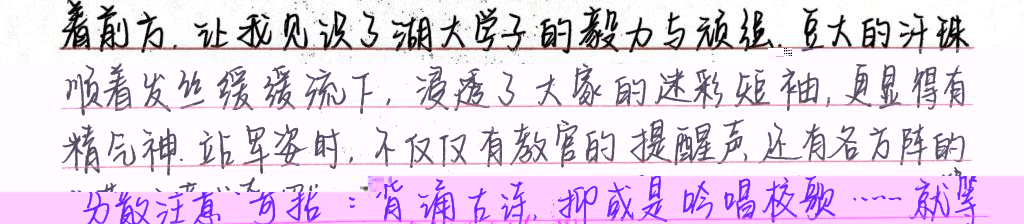 着前方.让我见识了湖大学子的毅力与顽强.豆大的汗珠
顺着发丝缓缓流下,浸透了大家的迷彩短袖,更显得有
精气神.站军姿时,不仅仅有教官的提醒声,还有各方阵的
分散注意 包括:背诵古诗,抑或是吟唱校歌……就等